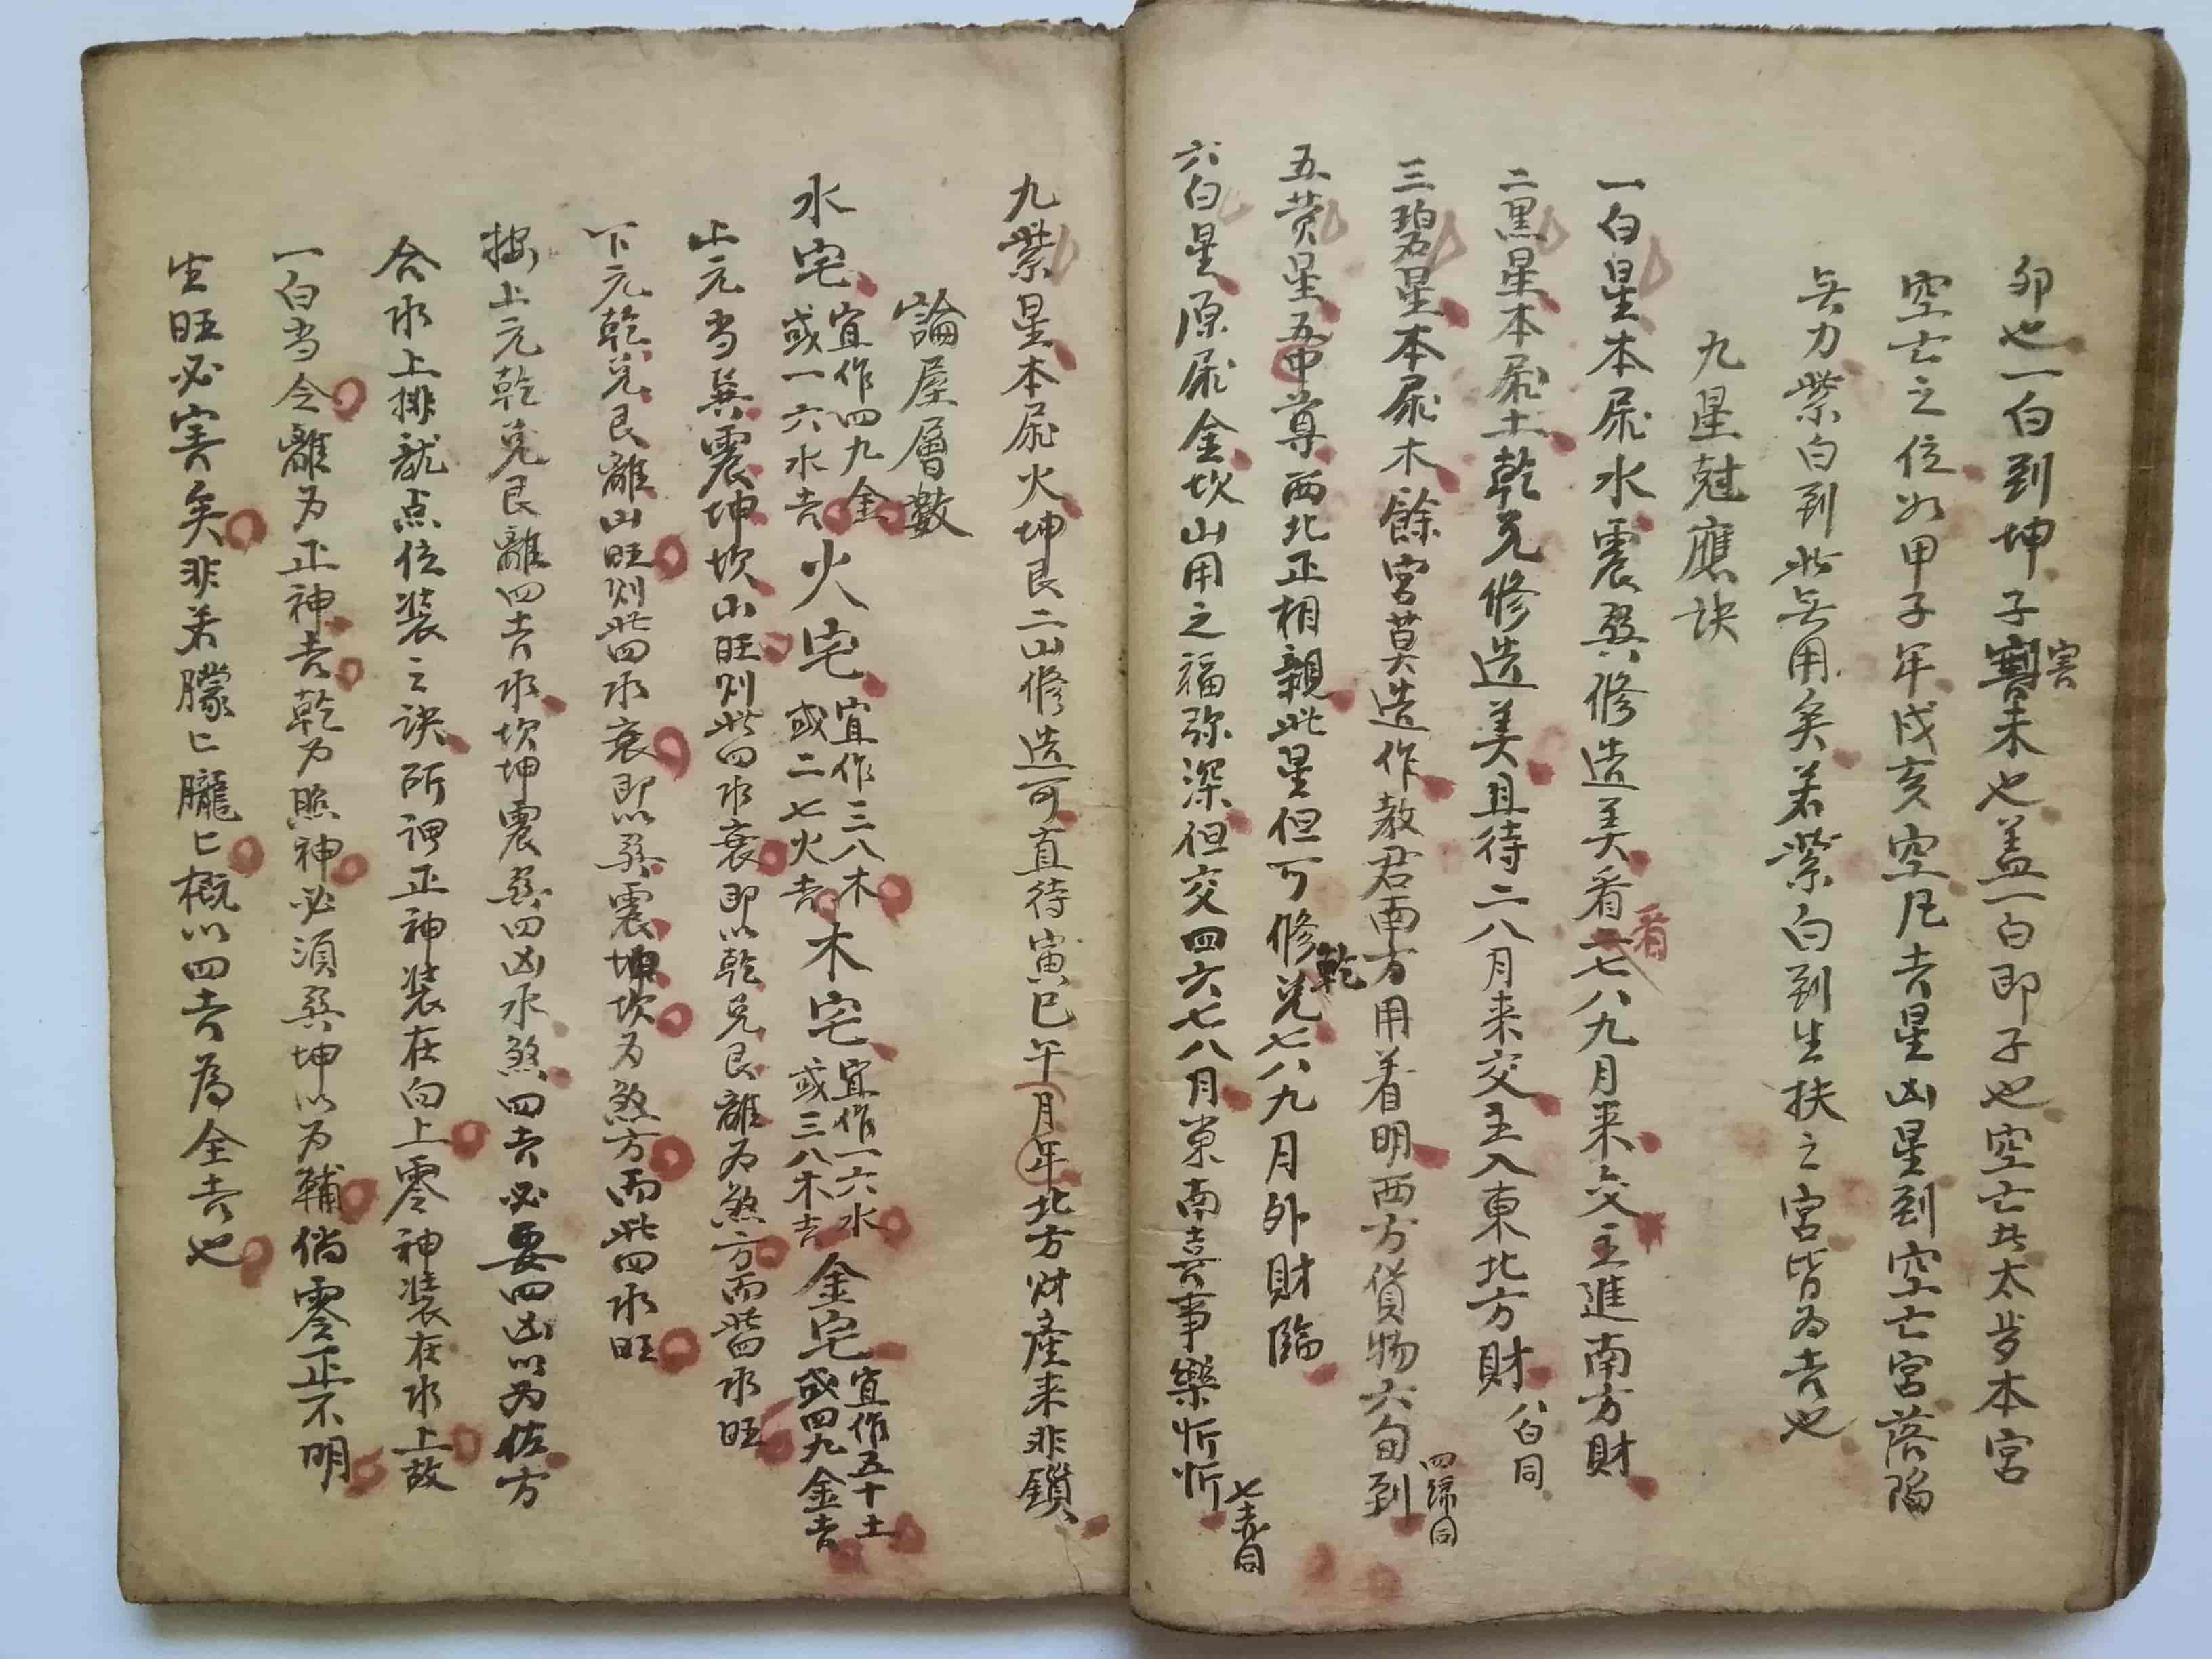 卯也一白到坤子害未也盖一白即子也空亡共太歲本宮
空亡之位如甲子年戌亥空凡吉星凶星到空亡宮落陷
無力紫白到此無用矣若紫白到生扶之宮皆為吉也
九星尅應訣
一白星本属水震巽修造美看七八九月来交主進南方財
二黒星本属土乾兌修造美且待二八月来交主入東北方財 八白同
三碧星本属木餘宮莫造作教君両方用着明西方貨物六旬到 四緑同
五黄星五中尊西北正相親此星但可修乾兌七八九月外財臨
六白星原属金坎山用之福弥深但交四六七八月東南喜事樂忻忻 七赤同
九紫星本属火坤艮二山修造可直待寅巳午月年北方财產来非鎖
論屋層數
水宅 宜作四九金 或一六水吉 火宅 宜作三八木 或二七火吉 木宅 宜作一六水 或三八木吉 金宅 宜作五十土 或四九金吉
上元当巽震坤坎山旺则此四水衰即以乾兌艮離为煞方而此四水旺
下元乾兌艮離山旺则此四水衰即以巽震坤坎为煞方而此四水旺
按上元乾兌艮離四吉水坎坤震巽四凶水煞四吉必要四凶以为佐方
合水上排龍点位装之訣所謂正神装在向上零神装在水上故
一白当令離为正神吉乾为照神必須巽坤以为輔倘零正不明
生旺必害矣非若朦匕朧匕概以四吉為全吉也